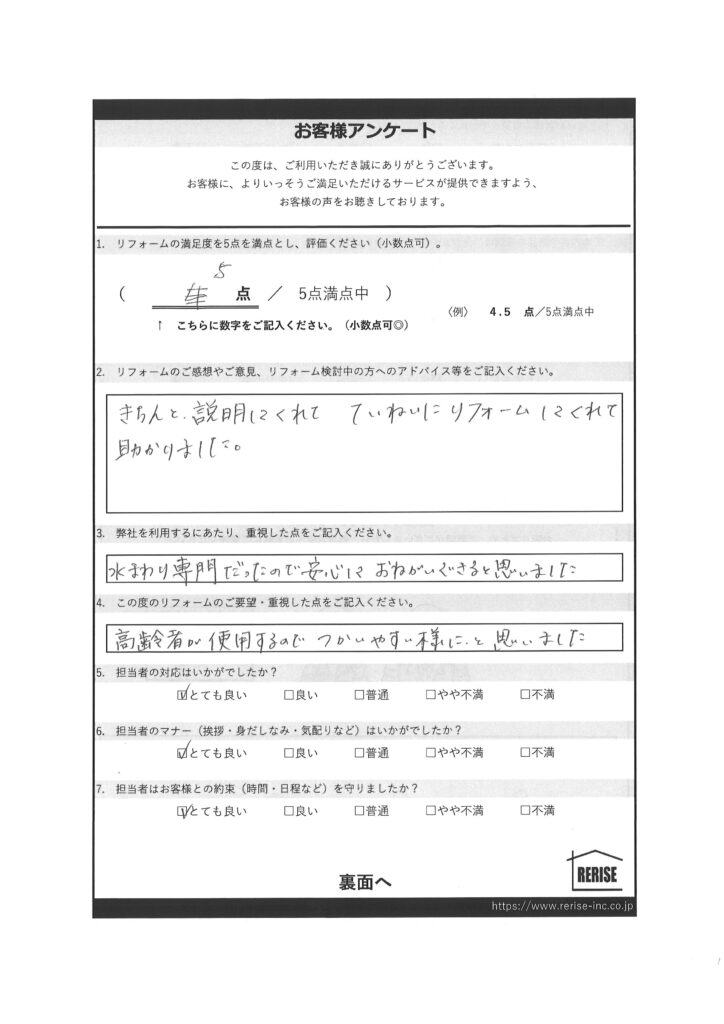 お客様アンケート
この度は、ご利用いただき誠にありがとうございます。
お客様に、よりいっそうご満足いただけるサービスが提供できますよう、
お客様の声をお聴きしております。
1. リフォームの満足度を5点を満点とし、評価ください（小数点可）。
5
（ 点 ／ 5点満点中 ）
〈例〉 4.5 点／5点満点中
↑ こちらに数字をご記入ください。（小数点可◎）
2. リフォームのご感想やご意見、リフォーム検討中の方へのアドバイス等をご記入ください。
きちんと、説明してくれて ていねいにリフォームしてくれて
助かりました。
3. 弊社を利用するにあたり、重視した点をご記入ください。
水まわり専門だったので安心して おねがいできると思いました
4. この度のリフォームのご要望・重視した点をご記入ください。
高齢者が使用するので つかいやすい様に、と思いました
5. 担当者の対応はいかがでしたか？
☑とても良い □良い □普通 □やや不満 □不満
6. 担当者のマナー（挨拶・身だしなみ・気配りなど）はいかがでしたか？
☑とても良い □良い □普通 □やや不満 □不満
7. 担当者はお客様との約束（時間・日程など）を守りましたか？
☑とても良い □良い □普通 □やや不満 □不満
裏面へ
RERISE
https://www.rerise-inc.co.jp